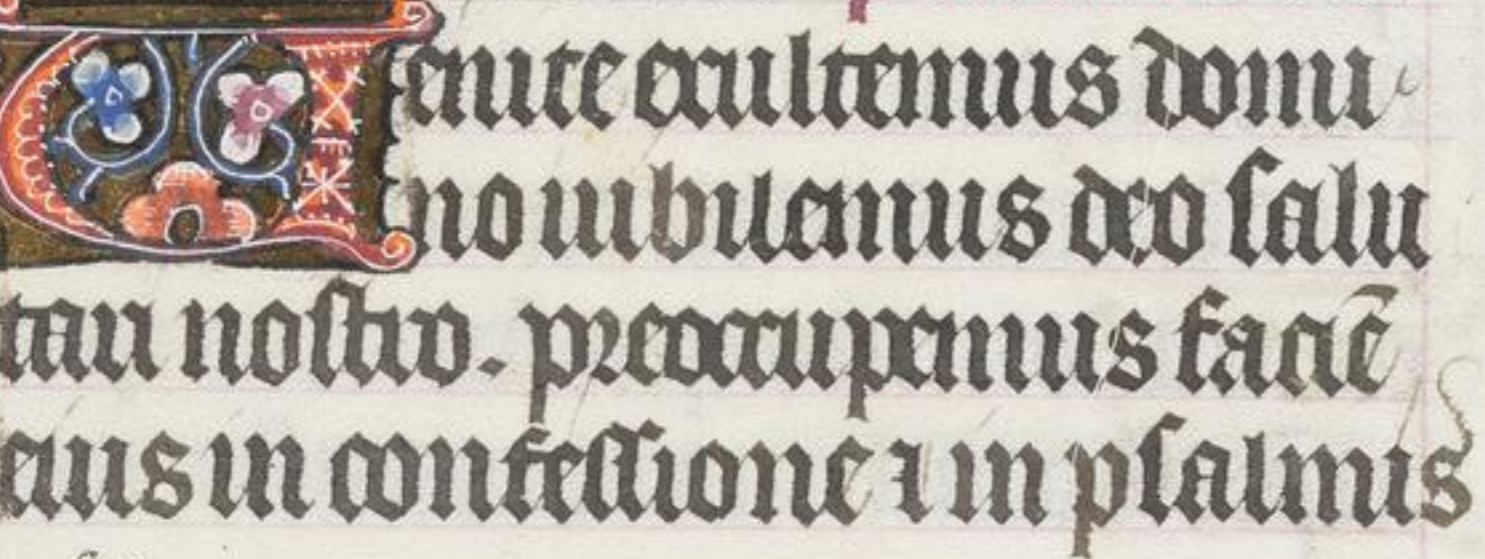 Venite exultemus domi
no iubilemus deo salu
tari nostro. preoccupemus faciē
eius in confessione ⁊ in psalmis